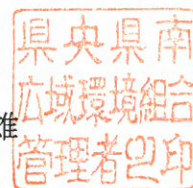 雄
県央県南
広域環境組合
管理者之印